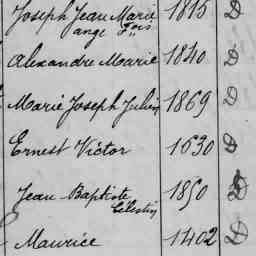 Joseph Jean Marie 1815 D
ange Fois
Alexandre Marie 1840 D
Marie Joseph Julien 1869 D
Ernest Victor 1630 D
Jean Baptiste 1850 D
Célestin
Maurice 1402 D